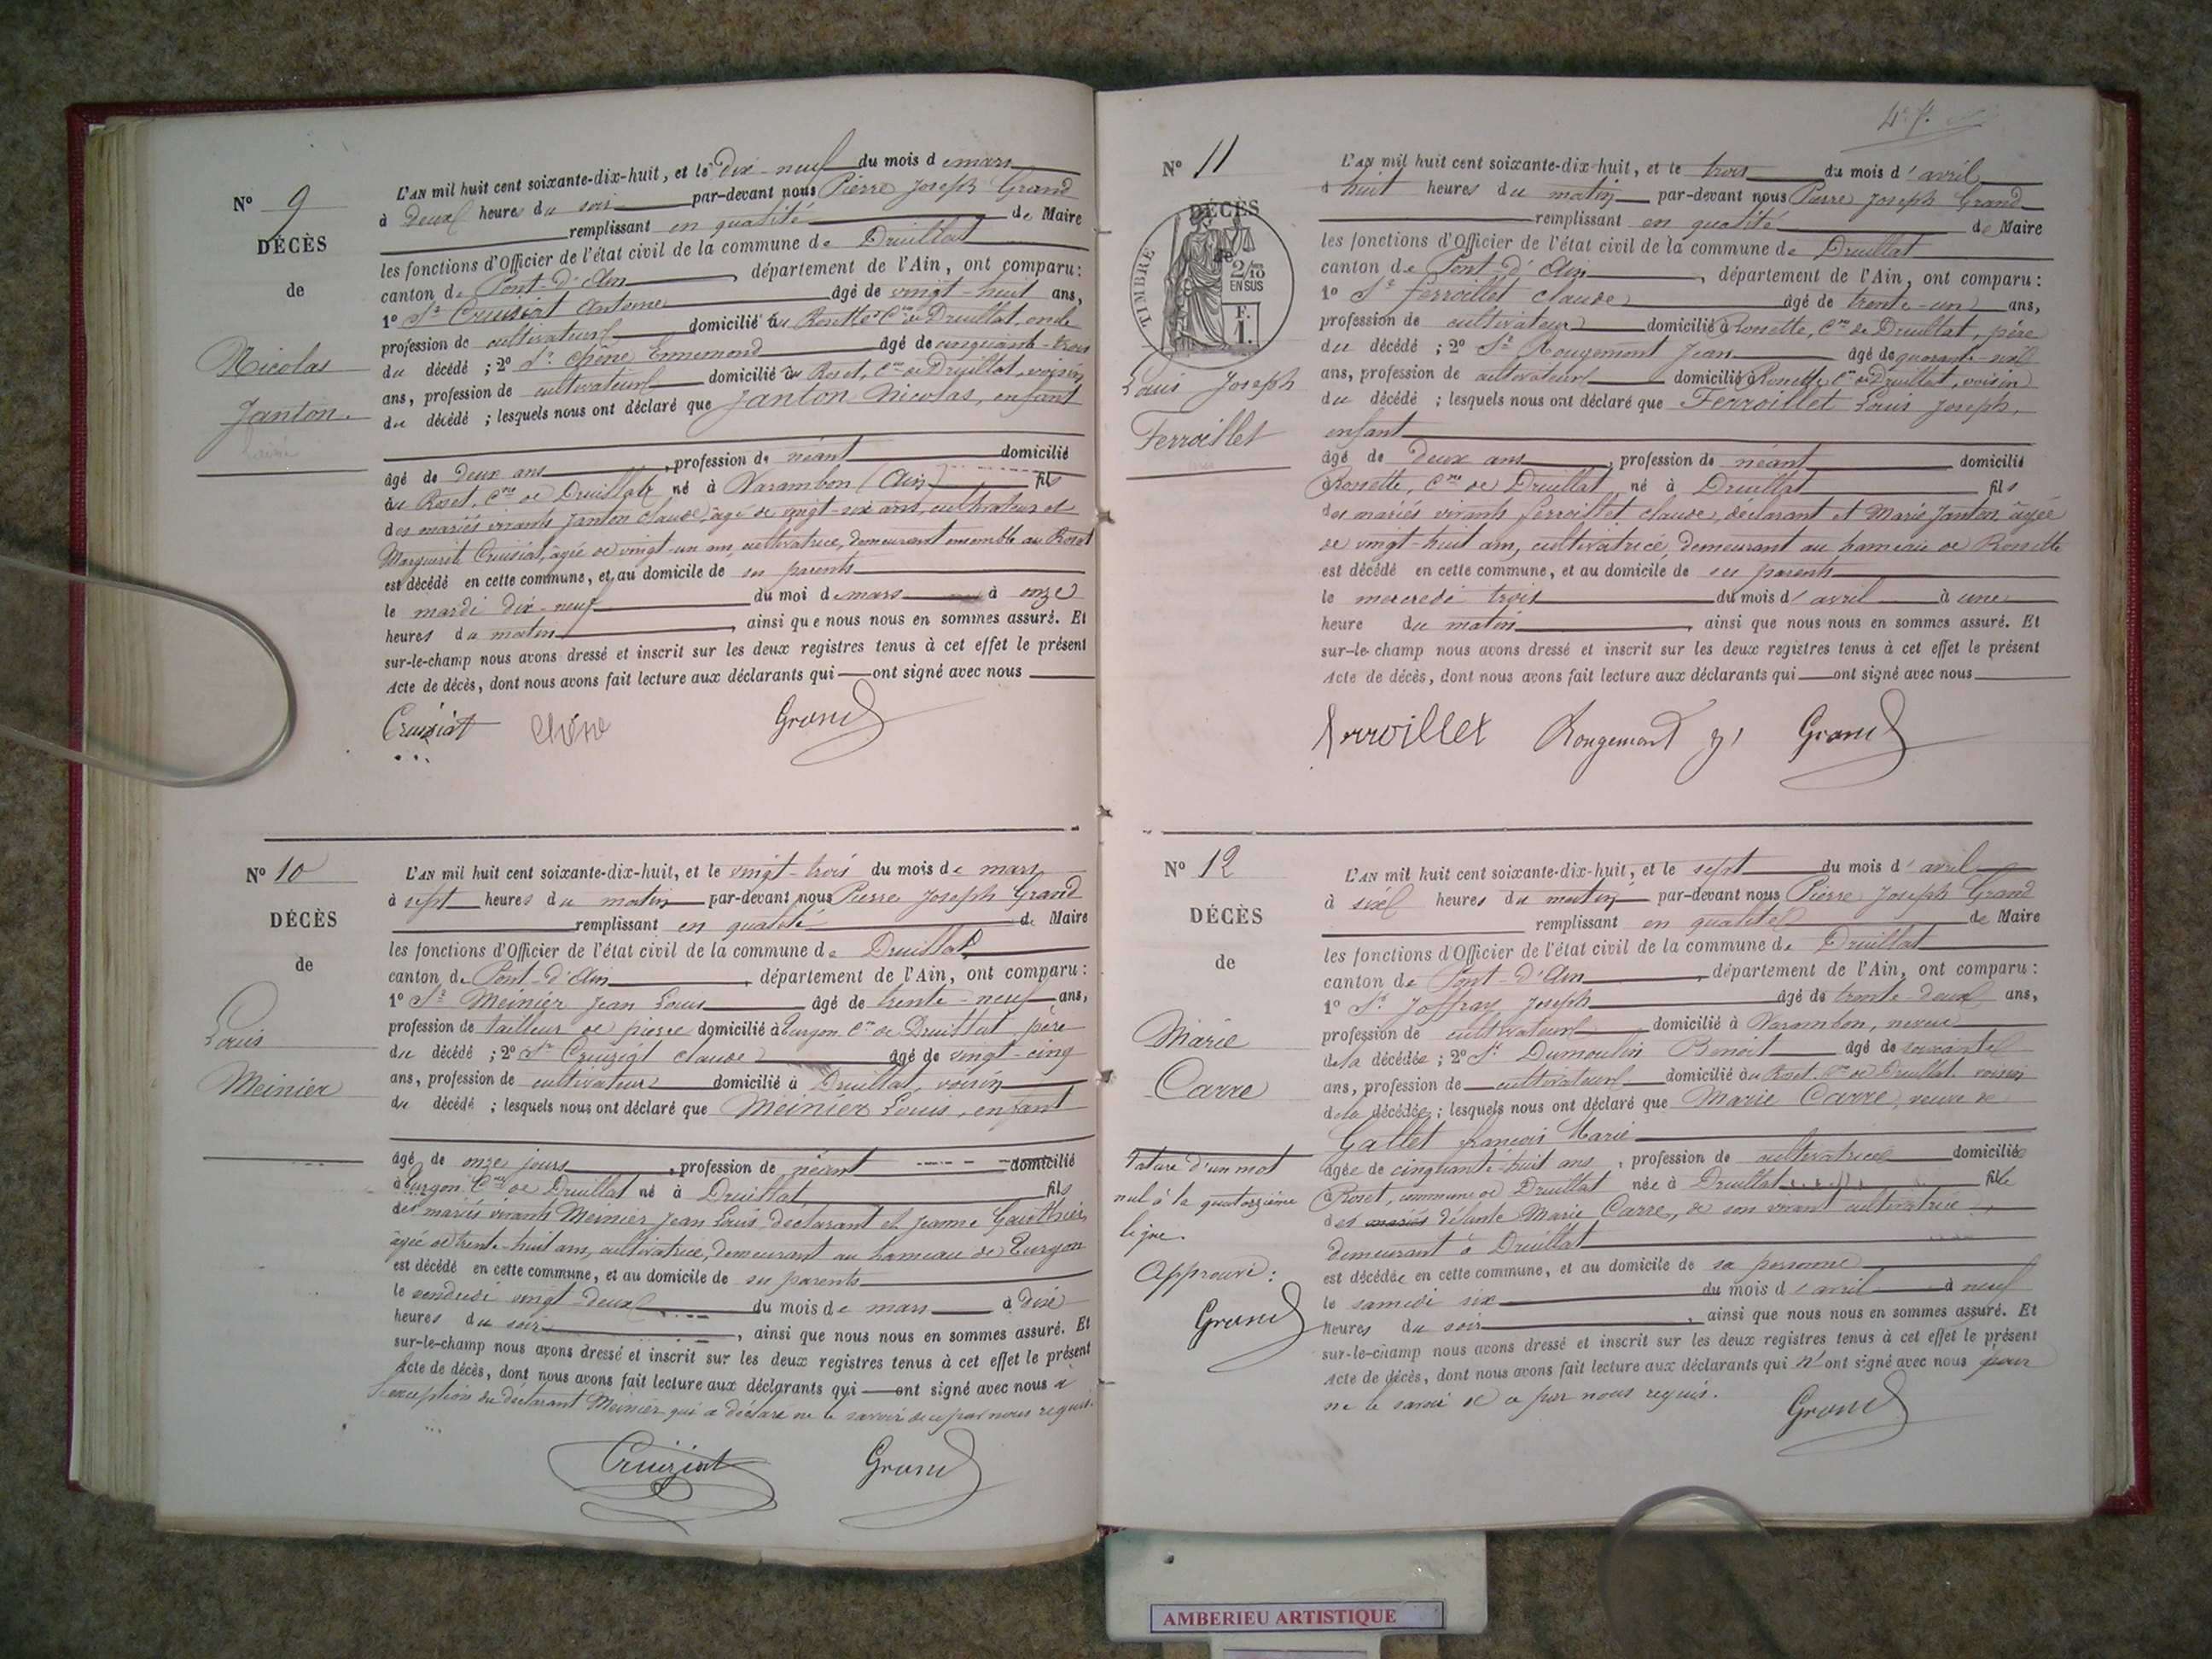 Nº 9
DÉCÈS
de
Nicolas
Janton
L'AN mil huit cent soixante-dix-huit, et le dix-neuf du mois de mars
à deux heures du soir par-devant nous Pierre Joseph Grand
remplissant en qualité de Maire
les fonctions d'Officier de l'état civil de la commune de Druillat
canton de Pont-d'Ain, département de l'Ain, ont comparu:
1º Sr Cruiziat Antoine âgé de vingt-huit ans,
profession de cultivateur domicilié au Rosette Cne de Druillat, oncle
du décédé; 2º Sr Chêne Ennemond âgé de cinquante-trois
ans, profession de cultivateur domicilié au Roset, Cne de Druillat, voisin
du décédé; lesquels nous ont déclaré que Janton Nicolas, enfant
âgé de deux ans, profession de néant domicilié
au Roset, Cne de Druillat né à Varambon (Ain) fils
des mariés vivants Janton Claude, âgé de vingt-six ans, cultivateur et
Marguerite Cruiziat, âgée de vingt-un ans, cultivatrice, demeurant ensemble au Roset
est décédé en cette commune, et au domicile de ses parents
le mardi dix-neuf du moi de mars à onze
heures du matin, ainsi que nous nous en sommes assuré. Et
sur-le-champ nous avons dressé et inscrit sur les deux registres tenus à cet effet le présent
Acte de décès, dont nous avons fait lecture aux déclarants qui ont signé avec nous
Cruiziat Chêne Grand
Nº 10
DÉCÈS
de
Louis
Meinier
L'AN mil huit cent soixante-dix-huit, et le vingt-trois du mois de mars
à sept heures du matin par-devant nous Pierre Joseph Grand
remplissant en qualité de Maire
les fonctions d'Officier de l'état civil de la commune de Druillat
canton de Pont-d'Ain, département de l'Ain, ont comparu:
1º Sr Meinier Jean Louis âgé de trente-neuf ans,
profession de tailleur de pierre domicilié à Turgon Cne de Druillat père
du décédé; 2º Sr Cruiziat Claude âgé de vingt-cinq
ans, profession de cultivateur domicilié à Druillat, voisin
du décédé; lesquels nous ont déclaré que Meinier Louis, enfant
âgé de onze jours, profession de néant domicilié
à Turgon Cne de Druillat né à Druillat fils
des mariés vivants Meinier Jean Louis déclarant et Jeanne Gauthier,
âgée de trente-huit ans, cultivatrice, demeurant au hameau de Turgon
est décédé en cette commune, et au domicile de ses parents
le vendredi vingt-deux du mois de mars à dix
heures du soir, ainsi que nous nous en sommes assuré. Et
sur-le-champ nous avons dressé et inscrit sur les deux registres tenus à cet effet le présent
Acte de décès, dont nous avons fait lecture aux déclarants qui ont signé avec nous à
l'exception du déclarant Meinier qui a déclaré ne le savoir de ce par nous requis.
Cruiziat Grand
Nº 11
DÉCÈS
de
TIMBRE
2/10
EN SUS
F.
1.
Louis Joseph
Ferroillet
L'AN mil huit cent soixante-dix-huit, et le trois du mois d'avril
à huit heures du matin par-devant nous Pierre Joseph Grand
remplissant en qualité de Maire
les fonctions d'Officier de l'état civil de la commune de Druillat
canton de Pont-d'Ain, département de l'Ain, ont comparu:
1º Sr Ferroillet Claude âgé de trente-un ans,
profession de cultivateur domicilié à Rossette, Cne de Druillat, père
du décédé; 2º Sr Rougemont Jean âgé de quarante-sept
ans, profession de cultivateur domicilié à Rossette Cne de Druillat, voisin
du décédé; lesquels nous ont déclaré que Ferroillet Louis Joseph,
enfant
âgé de deux ans, profession de néant domicilié
à Rossette, Cne de Druillat né à Druillat fils
des mariés vivants Ferroillet Claude, déclarant et Marie Janton, âgée
de vingt-huit ans, cultivatrice, demeurant au hameau de Rossette
est décédé en cette commune, et au domicile de ses parents
le mercredi trois du mois d'avril à une
heure du matin, ainsi que nous nous en sommes assuré. Et
sur-le-champ nous avons dressé et inscrit sur les deux registres tenus à cet effet le présent
Acte de décès, dont nous avons fait lecture aux déclarants qui ont signé avec nous
Ferroillet Rougemont Grand
Nº 12
DÉCÈS
de
Marie
Carre
Rature d'un mot
nul à la quatorzième
ligne.
Approuvé:
Grand
L'AN mil huit cent soixante-dix-huit, et le sept du mois d'avril
à six heures du matin par-devant nous Pierre Joseph Grand
remplissant en qualité de Maire
les fonctions d'Officier de l'état civil de la commune de Druillat
canton de Pont-d'Ain, département de l'Ain, ont comparu:
1º Sr Joffray Joseph âgé de trente-deux ans,
profession de cultivateur domicilié à Varambon, neveu
de la décédée; 2º Sr Dumoulin Benoit âgé de soixante
ans, profession de cultivateur domicilié au Roset Cne de Druillat voisin
de la décédée; lesquels nous ont déclaré que Marie Carre, veuve de
Gallet françois Marie
âgée de cinquante-huit ans, profession de cultivatrice domiciliée
à Roset, commune de Druillat née à Druillat fille
des mariés défunte Marie Carre, de son vivant cultivatrice
demeurant à Druillat
est décédée en cette commune, et au domicile de sa personne
le samedi six du mois d'avril à neuf
heures du soir, ainsi que nous nous en sommes assuré. Et
sur-le-champ nous avons dressé et inscrit sur les deux registres tenus à cet effet le présent
Acte de décès, dont nous avons fait lecture aux déclarants qui n'ont signé avec nous pour
ne le savoir de ce par nous requis.
Grand
AMBERIEU ARTISTIQUE